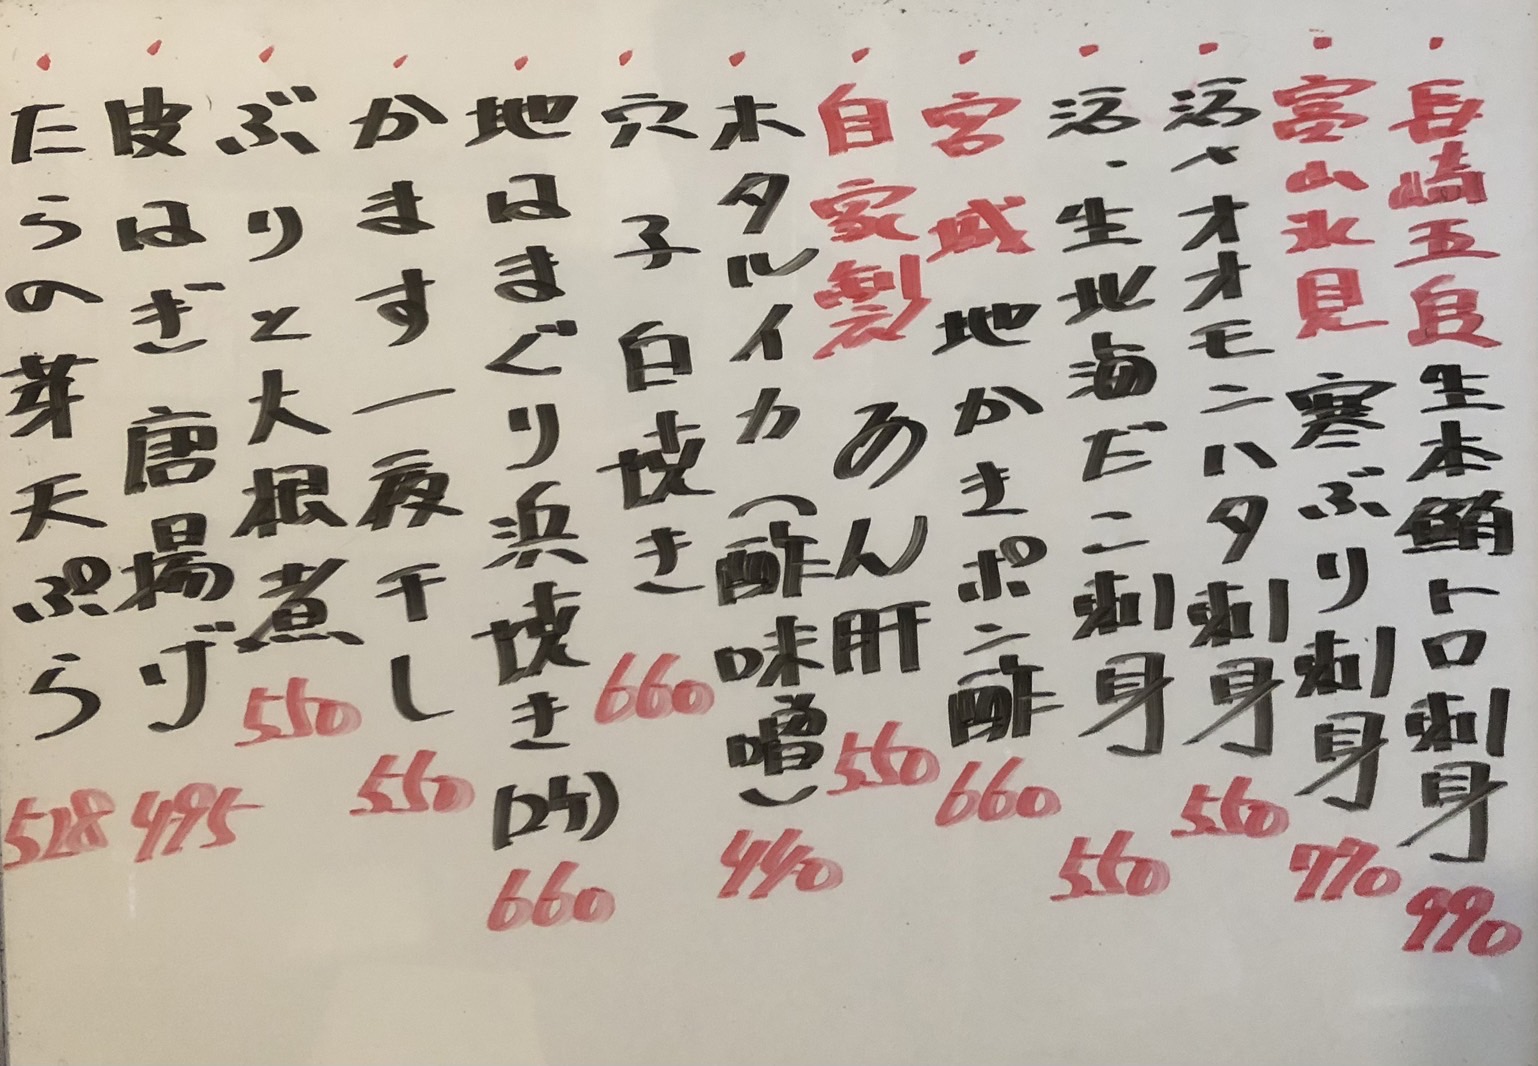 ・長崎五島 生本鮪トロ刺身 990
・富山氷見 寒ぶり刺身 770
・活〆オオモンハタ刺身 550
・活・生北海だこ刺身 550
・宮城 地かきポン酢 660
・自家製 あん肝 550
・ホタルイカ(酢味噌) 440
・穴子白焼き 660
・地はまぐり浜焼き(2ケ) 660
・かます一夜干し 550
・ぶりと大根煮 550
・皮はぎ唐揚げ 495
・たらの芽天ぷら 528